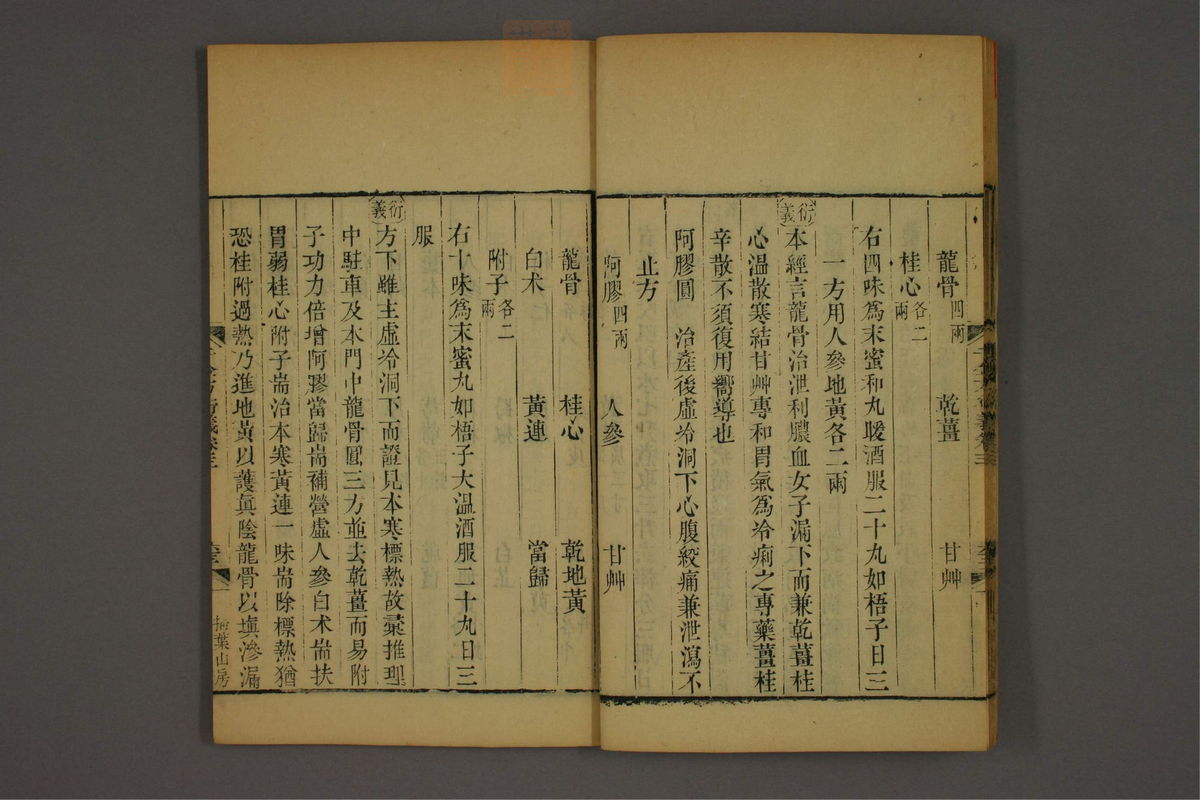 龍骨四兩 乾薑 甘艸
桂心各二兩
右四味爲末蜜和丸暖酒服二十丸如梧子日三
一方用人參地黃各二兩
衍義
本經言龍骨治泄利膿血女子漏下而兼乾薑桂
心温散寒結甘艸專和胃氣爲冷痢之專藥薑桂
辛散不須復用嚮導也
阿膠圓 治產後虛冷洞下心腹絞痛兼泄瀉不
止方
阿膠四兩 人參 甘艸
龍骨 桂心 乾地黃
白朮 黃連 當歸
附子各二兩
右十味爲末蜜丸如梧子大温酒服二十丸日三
服
衍義
方下雖主虛冷洞下而證見本寒標熱故彚推理
中駐車及本門中龍骨圓三方並去乾薑而易附
子功力倍增阿膠當歸耑補營虛人參白朮耑扶
胃弱桂心附子耑治本寒黃連一味耑除標熱猶
恐桂附過熱乃進地黃以護眞陰龍骨以塡滲漏
千金方衍義卷三
掃葉山房